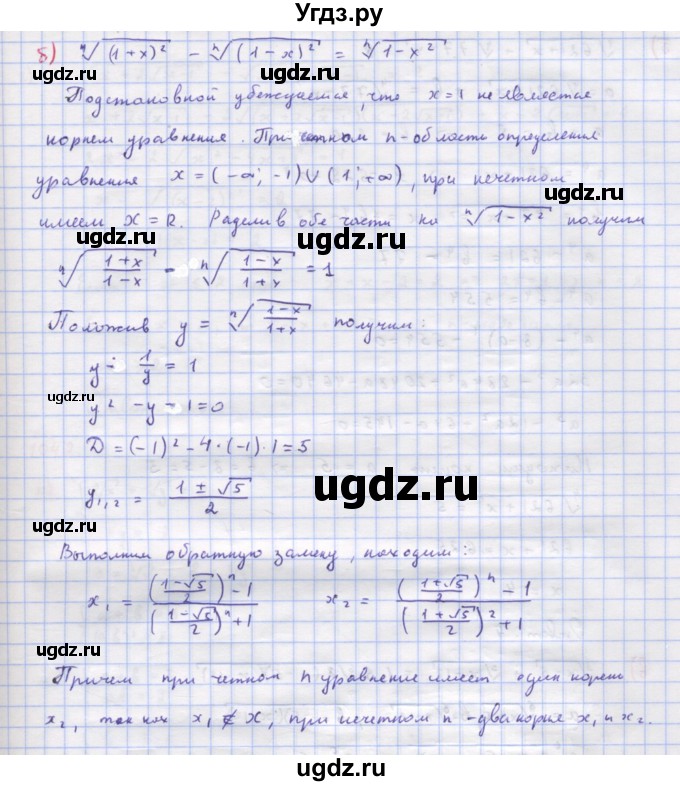 Угдз.ру
б) ⁿ√(1+x)² - ⁿ√(1-x)² = ⁿ√1-x²
ugdz.ru ugdz.ru
Подстановкой убеждаемся, что x=1 не является
корнем уравнения. При четном n-области определения
уравнения x=(-∞; -1)∪(1;+∞), при нечетном
имеем x=R. Разделив обе части на ⁿ√1-x² получим
ugdz.ru ugdz.ru
ⁿ√(1+x)/(1-x) - ⁿ√(1-x)/(1+x) = 1
Положив y = ⁿ√(1-x)/(1+x) получим:
y - 1/y = 1
ugdz.ru ugdz.ru
y² - y - 1 = 0
D = (-1)² - 4·(-1)·1 = 5
ugdz.ru
y₁,₂ = (1±√5)/2
ugdz.ru
Выполним обратную замену, находим:
x₁ = (((1-√5)/2)ⁿ-1)/(((1-√5)/2)ⁿ+1) x₂ = (((1+√5)/2)ⁿ-1)/(((1+√5)/2)²+1)
ugdz.ru ugdz.ru
Причем при четном n уравнение имеет один корень
x₂, так как x₁ ∉ X, при нечетном n - два корня x₁ и x₂.
ugdz.ru ugdz.ru
ugdz.ru